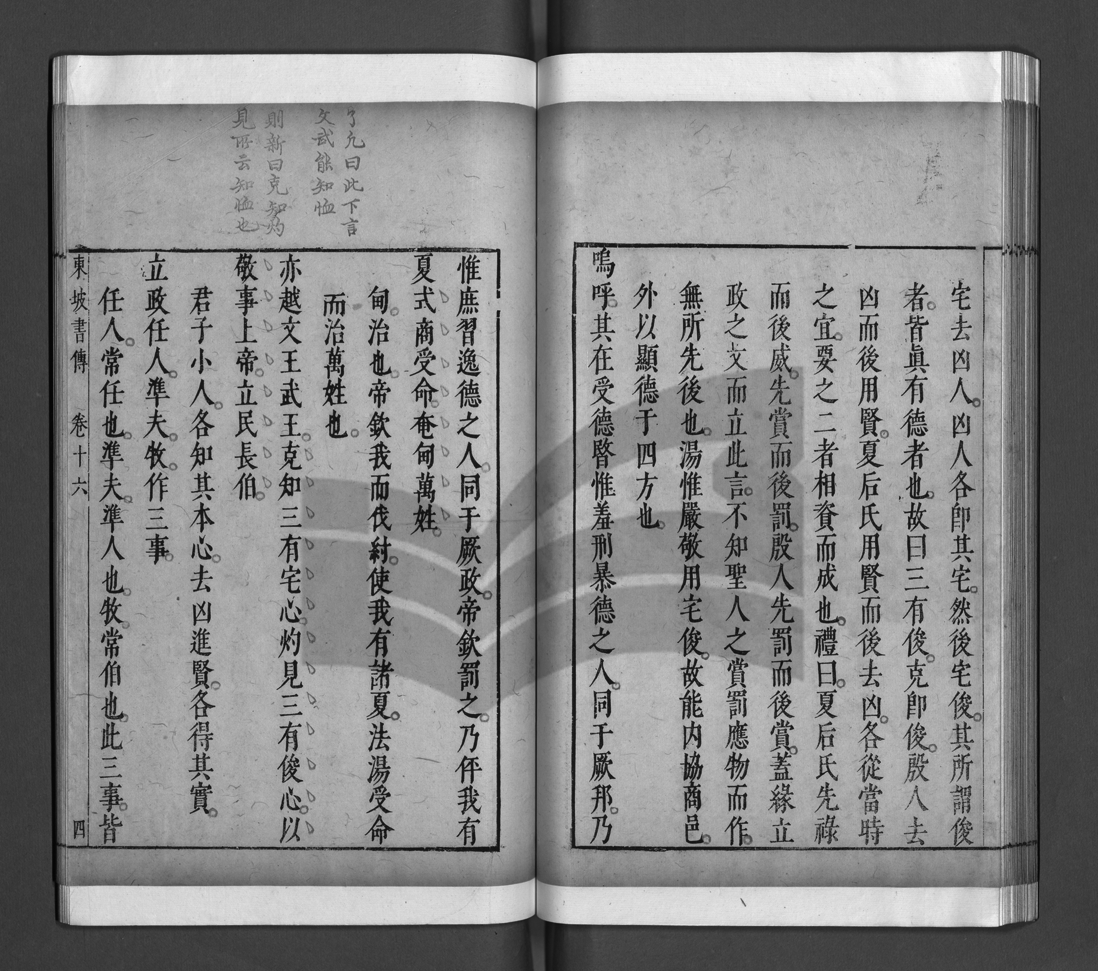 宅去凶人。凶人各卽其宅。然後宅俊。其所謂俊
者。皆眞有德者也。故曰三有俊。克卽俊。殷人去
凶而後用賢。夏后氏用賢而後去凶。各從當時
之宜。要之二者相資而成也。禮曰。夏后氏先祿
而後威。先賞而後罰。殷人先罰而後賞。蓋緣立
政之文而立此言。不知聖人之賞罰應物而作。
無所先後也。湯惟嚴敬用宅俊。故能内協商邑。
外以顯德于四方也。
嗚呼。其在受德暋惟羞刑暴德之人。同于厥邦。乃
了凡曰此下言
文武能知恤
則新曰克知灼
見所云知恤也
惟庶習逸德之人。同于厥政。帝欽罰之。乃伻我有
夏式商受命。奄甸萬姓。
甸。治也。帝欽我而伐紂。使我有諸夏。法湯受命
而治萬姓也。
亦越文王武王。克知三有宅心。灼見三有俊心。以
敬事上帝。立民長伯。
君子小人。各知其本心。去凶進賢。各得其實。
立政任人。準夫。牧。作三事。
任人。常任也。準夫。準人也。牧。常伯也。此三事。皆
東坡書傳 卷十六 四